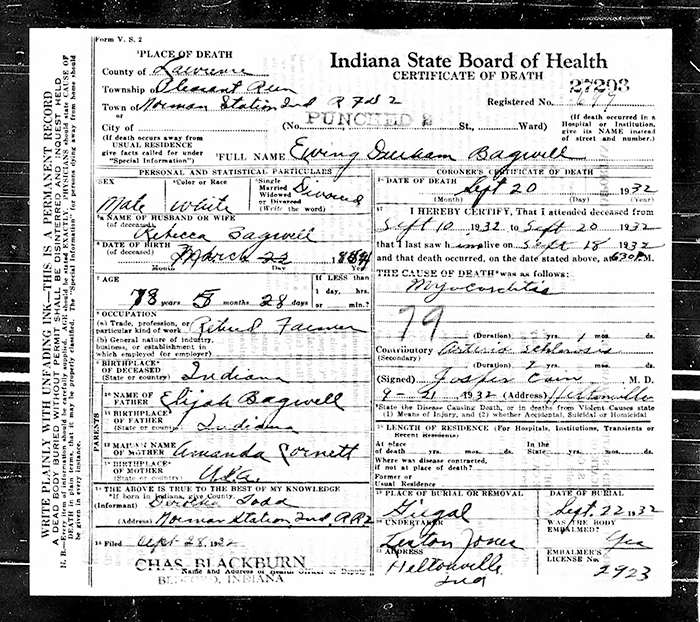 Form V. S. 2
Indiana State Board of Health
CERTIFICATE OF DEATH
¹PLACE OF DEATH
County of Lawrence
Township of Pleasant Run
Town of Norman Station Ind R Fd 2
or
City of
(No. St., Ward)
PUNCHED 2
27293
Registered No. 677
(If death occurred in a Hospital or Institution, give its NAME instead of street and number.)
(If death occurs away from
USUAL RESIDENCE
give facts called for under
"Special Information")
²FULL NAME Ewing Durham Bagwell
PERSONAL AND STATISTICAL PARTICULARS
SEX Male
Color or Race White
Single Married Widowed or Divorced (Write the word) Divorced
NAME OF HUSBAND OR WIFE
(of deceased) Rebecca Bagwell
DATE OF BIRTH
(of deceased) March 22 1854
Month Day Year
AGE
78 years 5 months 28 days
If LESS than 1 day, hrs. or min.?
OCCUPATION
(a) Trade, profession, or particular kind of work Retired Farmer
(b) General nature of industry, business, or establishment in which employed (or employer)
BIRTHPLACE OF DECEASED
(State or country) Indiana
NAME OF FATHER Elijah Bagwell
BIRTHPLACE OF FATHER
(State or country) Indiana
MAIDEN NAME OF MOTHER Amanda Cornett
BIRTHPLACE OF MOTHER
(State or country) U.S.A.
PARENTS
THE ABOVE IS TRUE TO THE BEST OF MY KNOWLEDGE
*If born in Indiana, give County.
(Informant) Todd
(Address) Norman Station, Ind, R R 2
Filed Sept 28, 1932
CHAS. BLACKBURN
BEDFORD, INDIANA
Name and Address of Health Officer or Deputy
CORONER'S CERTIFICATE OF DEATH
DATE OF DEATH
Sept 20 1932
(Month) (Day) (Year)
I HEREBY CERTIFY, That I attended deceased from
Sept 10 1932 to Sept 20 1932
that I last saw him alive on Sept 18 1932
and that death occurred, on the date stated above, at 630 P.M.
THE CAUSE OF DEATH* was as follows:
Myocarditis
79
(Duration) yrs. 1 mos. ds.
Contributory Arterio Schlerosis
(Secondary)
(Duration) yrs. mos. ds.
(Signed) Jasper Cain M. D.
9-21 1932 (Address) Heltonville
*State the Disease Causing Death, or in deaths from Violent Causes state (1) Means of Injury, and (2) whether Accidental, Suicidal or Homicidal
LENGTH OF RESIDENCE (For Hospitals, Institutions, Transients or Recent Residents)
At place of death yrs. mos. ds.
In the State yrs. mos. ds.
Where was disease contracted, if not at place of death?
Former or
Usual Residence
PLACE OF BURIAL OR REMOVAL
DATE OF BURIAL
Sept. 22 1932
UNDERTAKER
Jones
ADDRESS
Heltonville
Ind
WAS THE BODY EMBALMED? Yes
EMBALMER'S LICENSE No. 2923
WRITE PLAINLY WITH UNFADING INK—THIS IS A PERMANENT RECORD
A DEAD BODY BURIED WITHOUT PERMIT SHALL BE DISINTERRED AND INQUEST HELD
N. B.—Every item of information should be carefully supplied. AGE should be stated EXACTLY. PHYSICIANS should state CAUSE OF DEATH in plain terms, that it may be properly classified. The "Special Information" for persons dying away from home should be given in every instance.